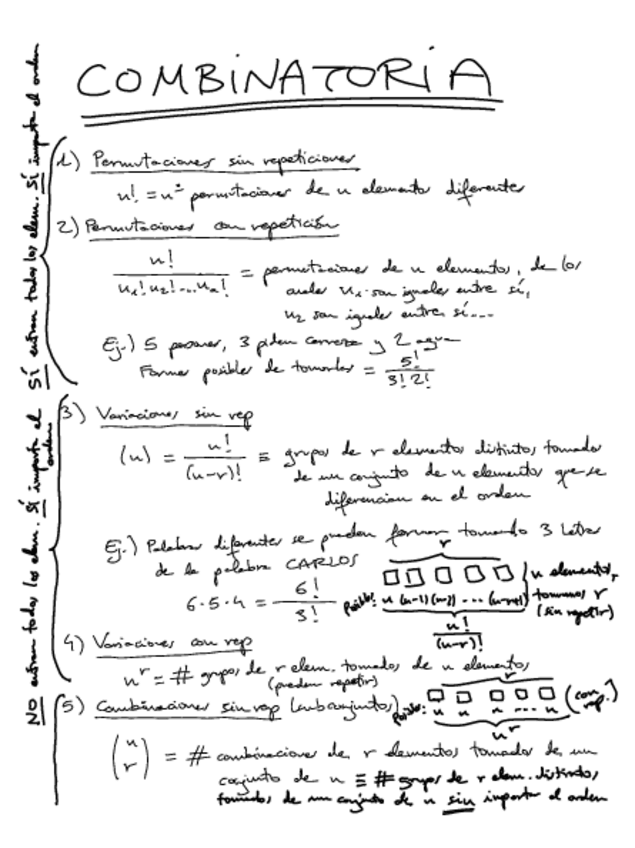 COMBINATORIA
SÍ entran todos los elem. SÍ importa el orden
1) Permutaciones sin repeticiones
n! = nº permutaciones de n elementos diferentes
2) Permutaciones con repetición
n! / n₁! n₂! ... nₐ! = permutaciones de n elementos, de los
cuales n₁ son iguales entre sí,
n₂ son iguales entre sí...
Ej.) 5 personas, 3 piden cerveza y 2 agua
Formas posibles de tomarlas = 5! / 3! 2!
NO entran todos los elem. SÍ importa el orden
3) Variaciones sin rep
(n) = n! / (n-r)! ≡ grupos de r elementos distintos tomados
de un conjunto de n elementos que se
diferencian en el orden
Ej.) Palabras diferentes se pueden formar tomando 3 letras
de la palabra CARLOS
6·5·4 = 6! / 3!
r
n elementos,
tomamos r
(sin repetir)
Posibles: n (n-1) (n-2) ... (n-r+1)
n! / (n-r)!
4) Variaciones con rep
nʳ = # grupos de r elem. tomados de n elementos
(pueden repetir)
r
Posibles: n n n ... n (con rep.)
nʳ
5) Combinaciones sin rep (subconjuntos)
(n r) = # combinaciones de r elementos tomados de un
conjunto de n ≡ # grupos de r elem. distintos,
tomados de un conjunto de n sin importar el orden